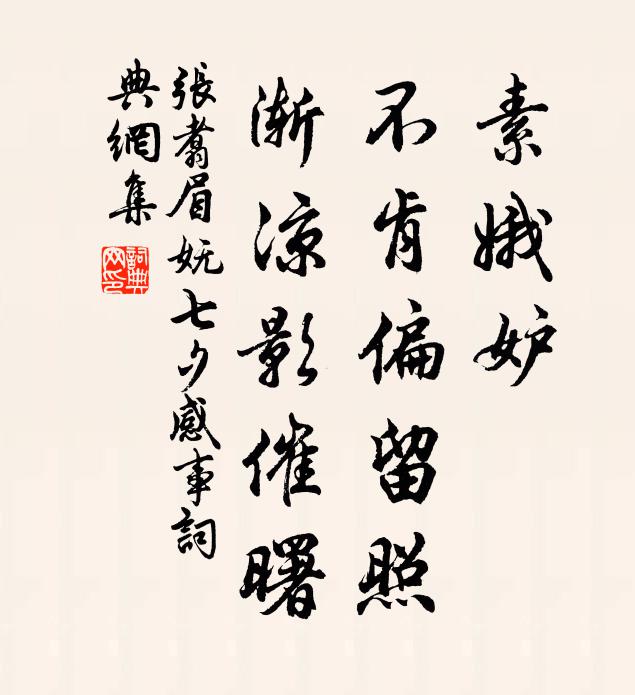 素娥妒
不肯偏留照
渐凉影催曙
張翥眉妩七夕感事詞
典網集
詞典
网印